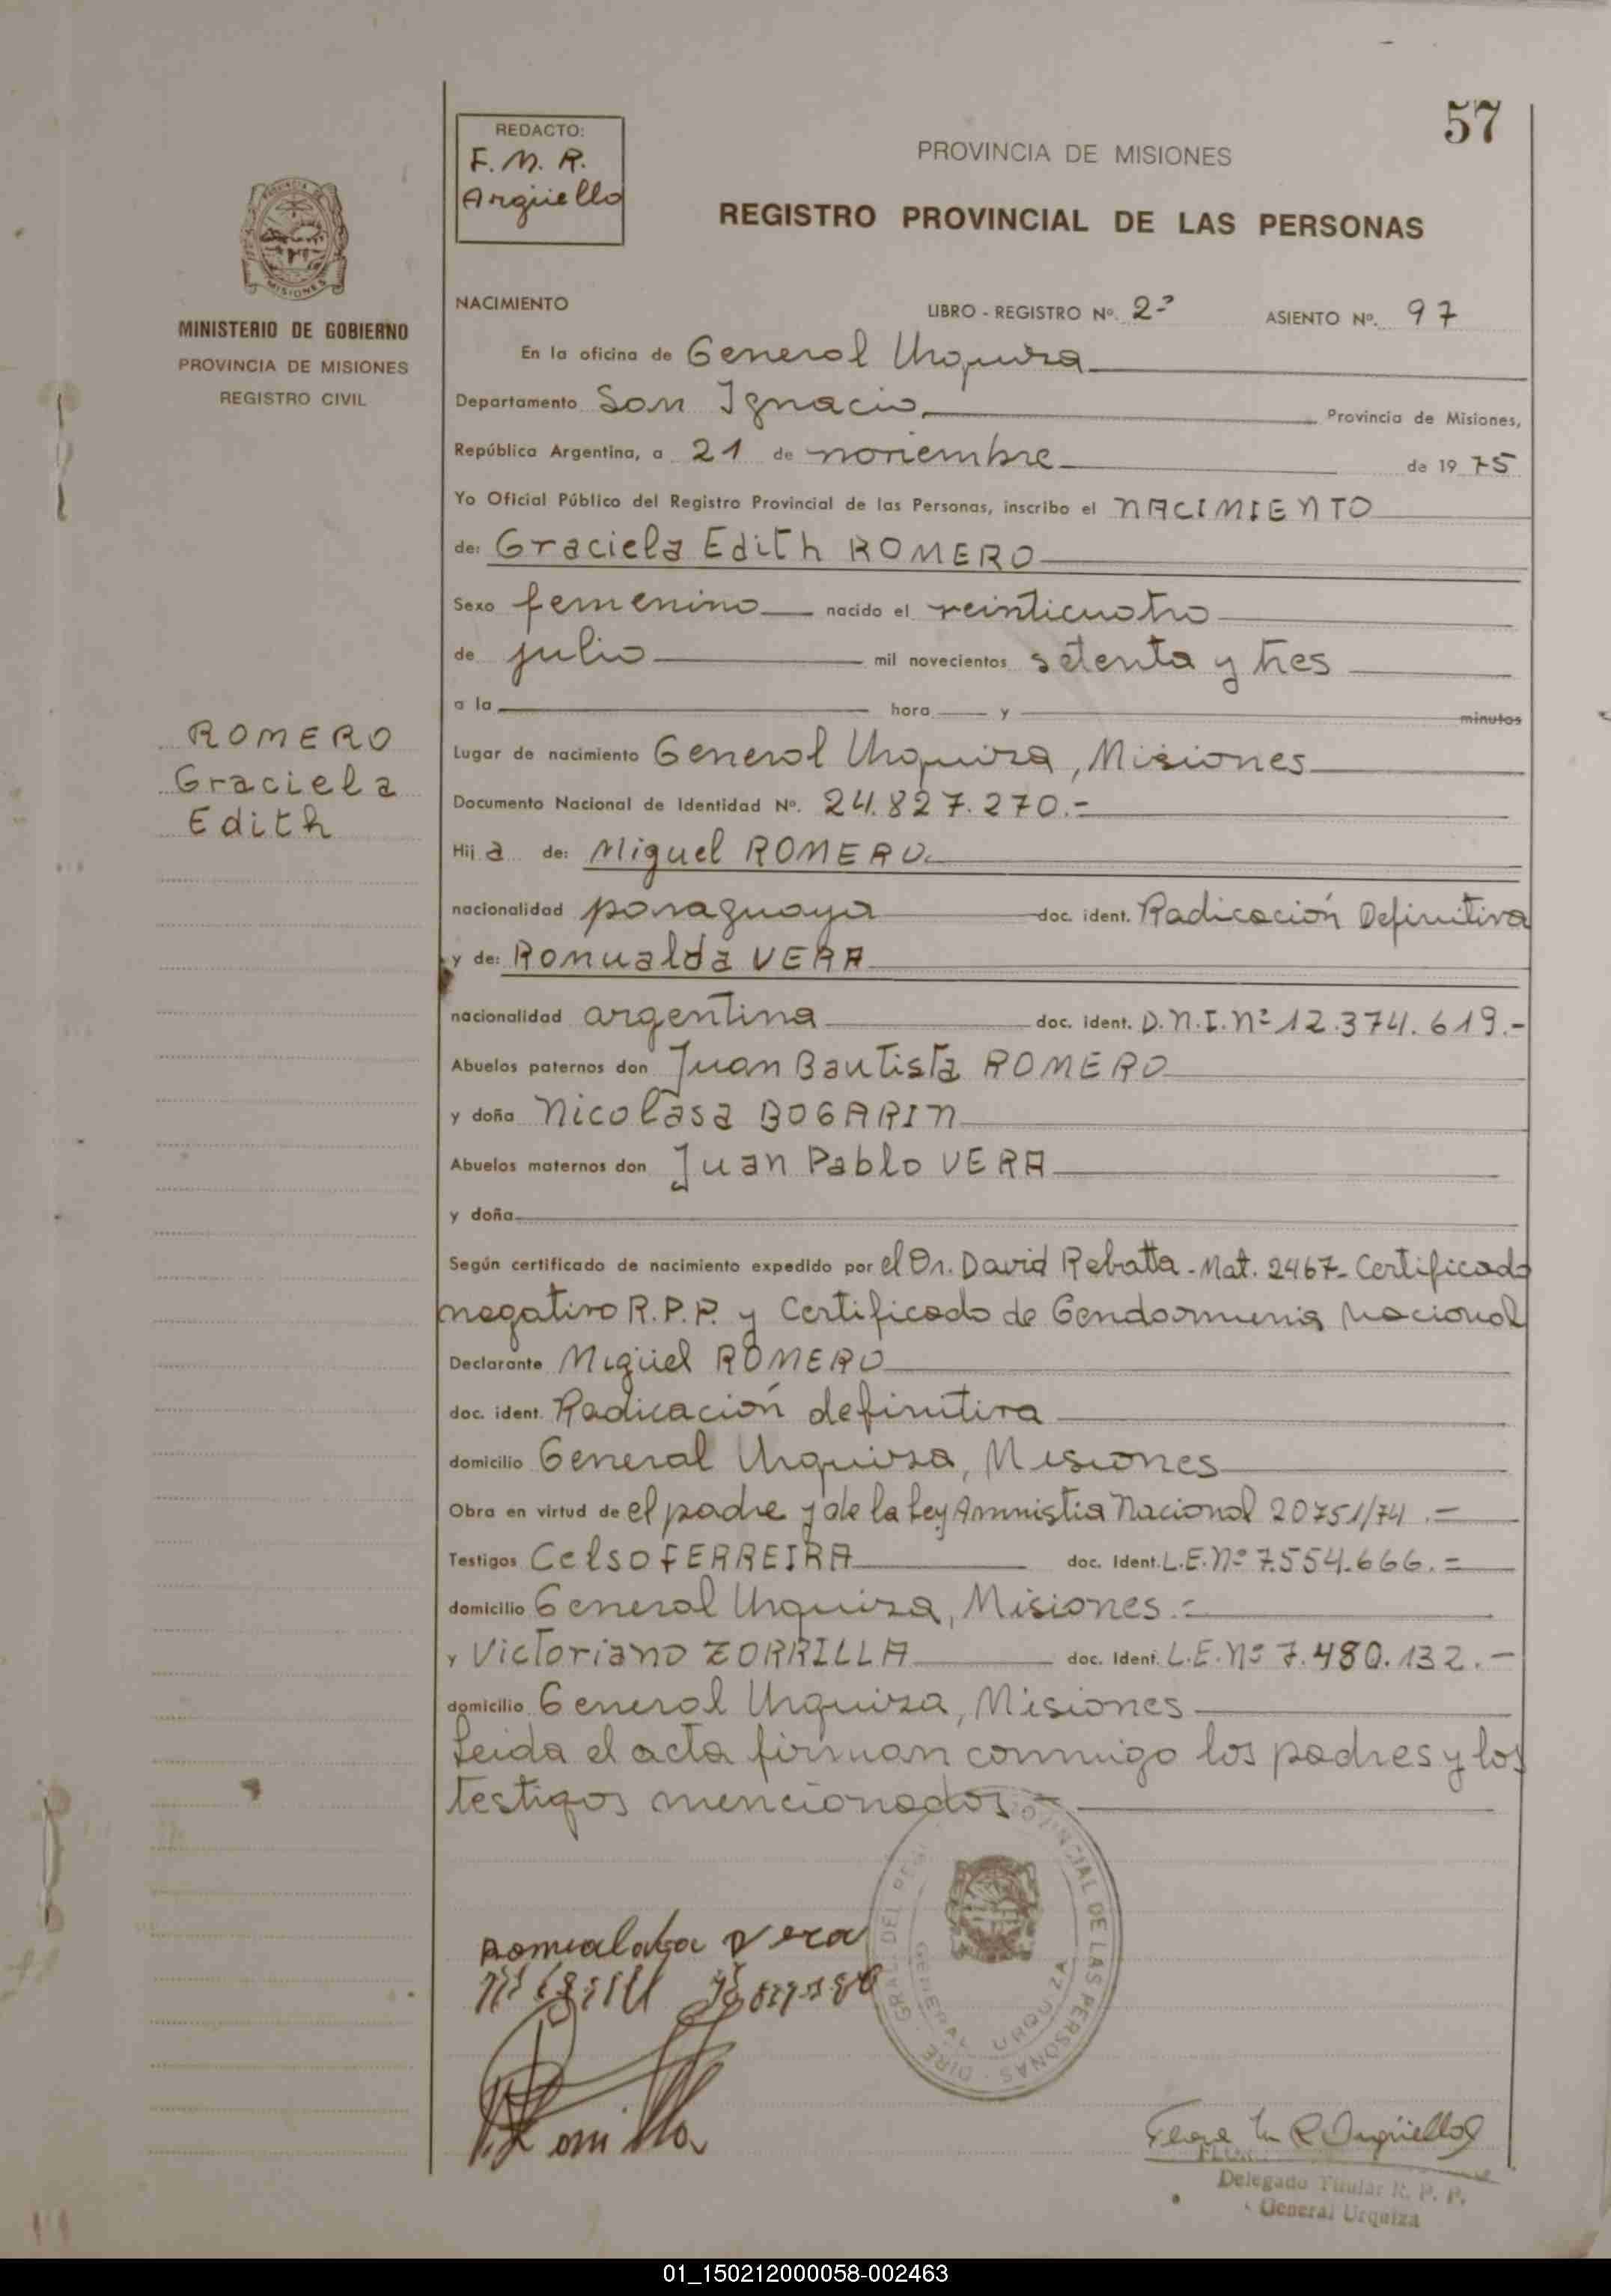 57
REDACTO:
F. M. R.
Argüello
PROVINCIA DE MISIONES
REGISTRO PROVINCIAL DE LAS PERSONAS
MISIONES
MINISTERIO DE GOBIERNO
PROVINCIA DE MISIONES
REGISTRO CIVIL
ROMERO
Graciela
Edith
NACIMIENTO LIBRO - REGISTRO Nº. 2º ASIENTO Nº. 97
En la oficina de General Urquiza
Departamento San Ignacio Provincia de Misiones,
República Argentina, a 21 de noviembre de 1975
Yo Oficial Público del Registro Provincial de las Personas, inscribo el NACIMIENTO
de: Graciela Edith ROMERO
Sexo femenino nacido el veinticuatro
de julio mil novecientos setenta y tres
a la hora y minutos
Lugar de nacimiento General Urquiza, Misiones
Documento Nacional de Identidad Nº. 24.827.270.-
Hij a de: Miguel ROMERO
nacionalidad paraguaya doc. ident. Radicación Definitiva
y de: Romualda VERA
nacionalidad argentina doc. ident. D.N.I.Nº 12.374.619.-
Abuelos paternos don Juan Bautista ROMERO
y doña Nicolasa BOGARIN
Abuelos maternos don Juan Pablo VERA
y doña
Según certificado de nacimiento expedido por el Dr. David Rebatta - Mat. 2467- Certificado
negativo R.P.P. y Certificado de Gendarmeria Nacional
Declarante Migüel ROMERO
doc. ident. Radicación definitiva
domicilio General Urquiza, Misiones
Obra en virtud de el padre y de la Ley Amnistia Nacional 20751/74 .=
Testigos Celso FERREIRA doc. Ident. L.E.Nº 7.554.666.=
domicilio General Urquiza, Misiones.=
y Victoriano ZORRILLA doc. Ident. L.E.Nº 7.480.132.-
domicilio General Urquiza, Misiones
Leida el acta firman conmigo los padres y los
testigos mencionados.-
Romualda Vera
DIRE. GRAL. DEL REGI PROVINCIAL DE LAS PERSONAS
GENERAL URQUIZA
Argüello
Delegado Titular R. P. P.
General Urquiza
01_150212000058-002463